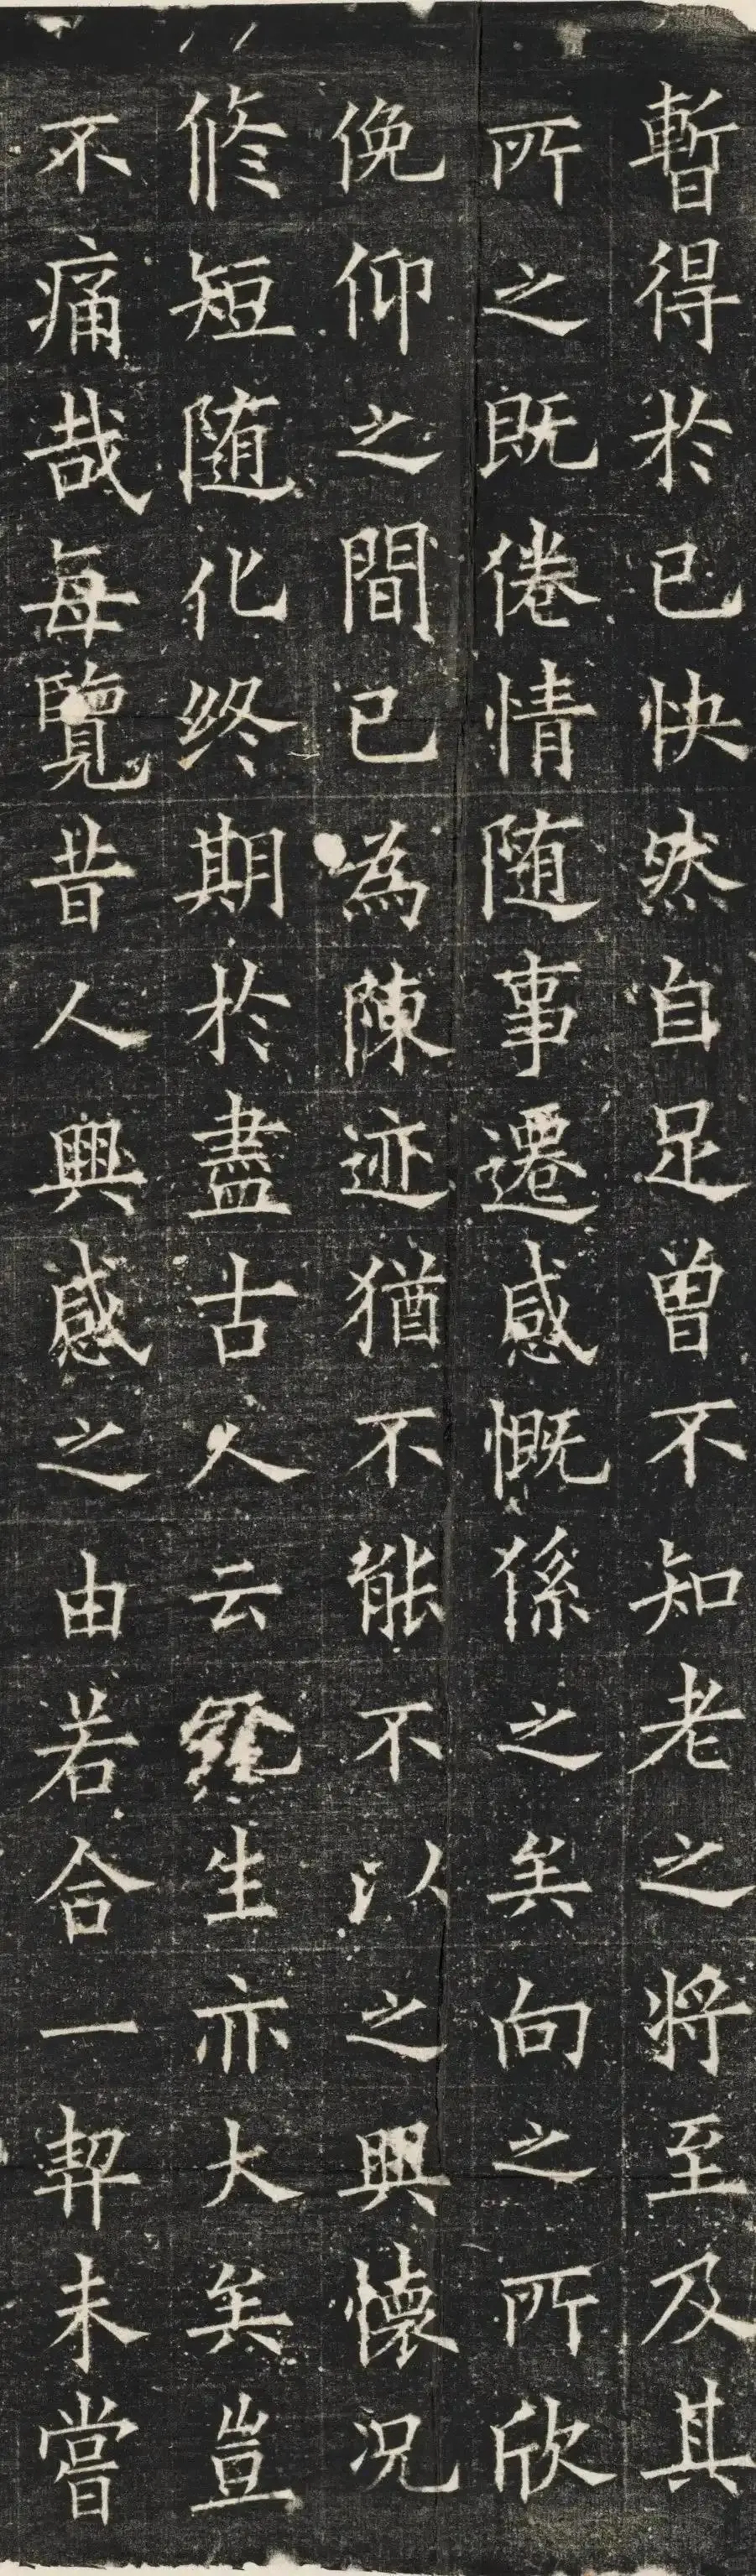 暫得於已快然自足曾不知老之將至及其
所之既倦情随事遷感慨係之矣向之所欣
俛仰之間已為陳迹猶不能不以之興懷況
脩短随化終期於盡古人云死生亦大矣豈
不痛哉每覽昔人興感之由若合一契未嘗